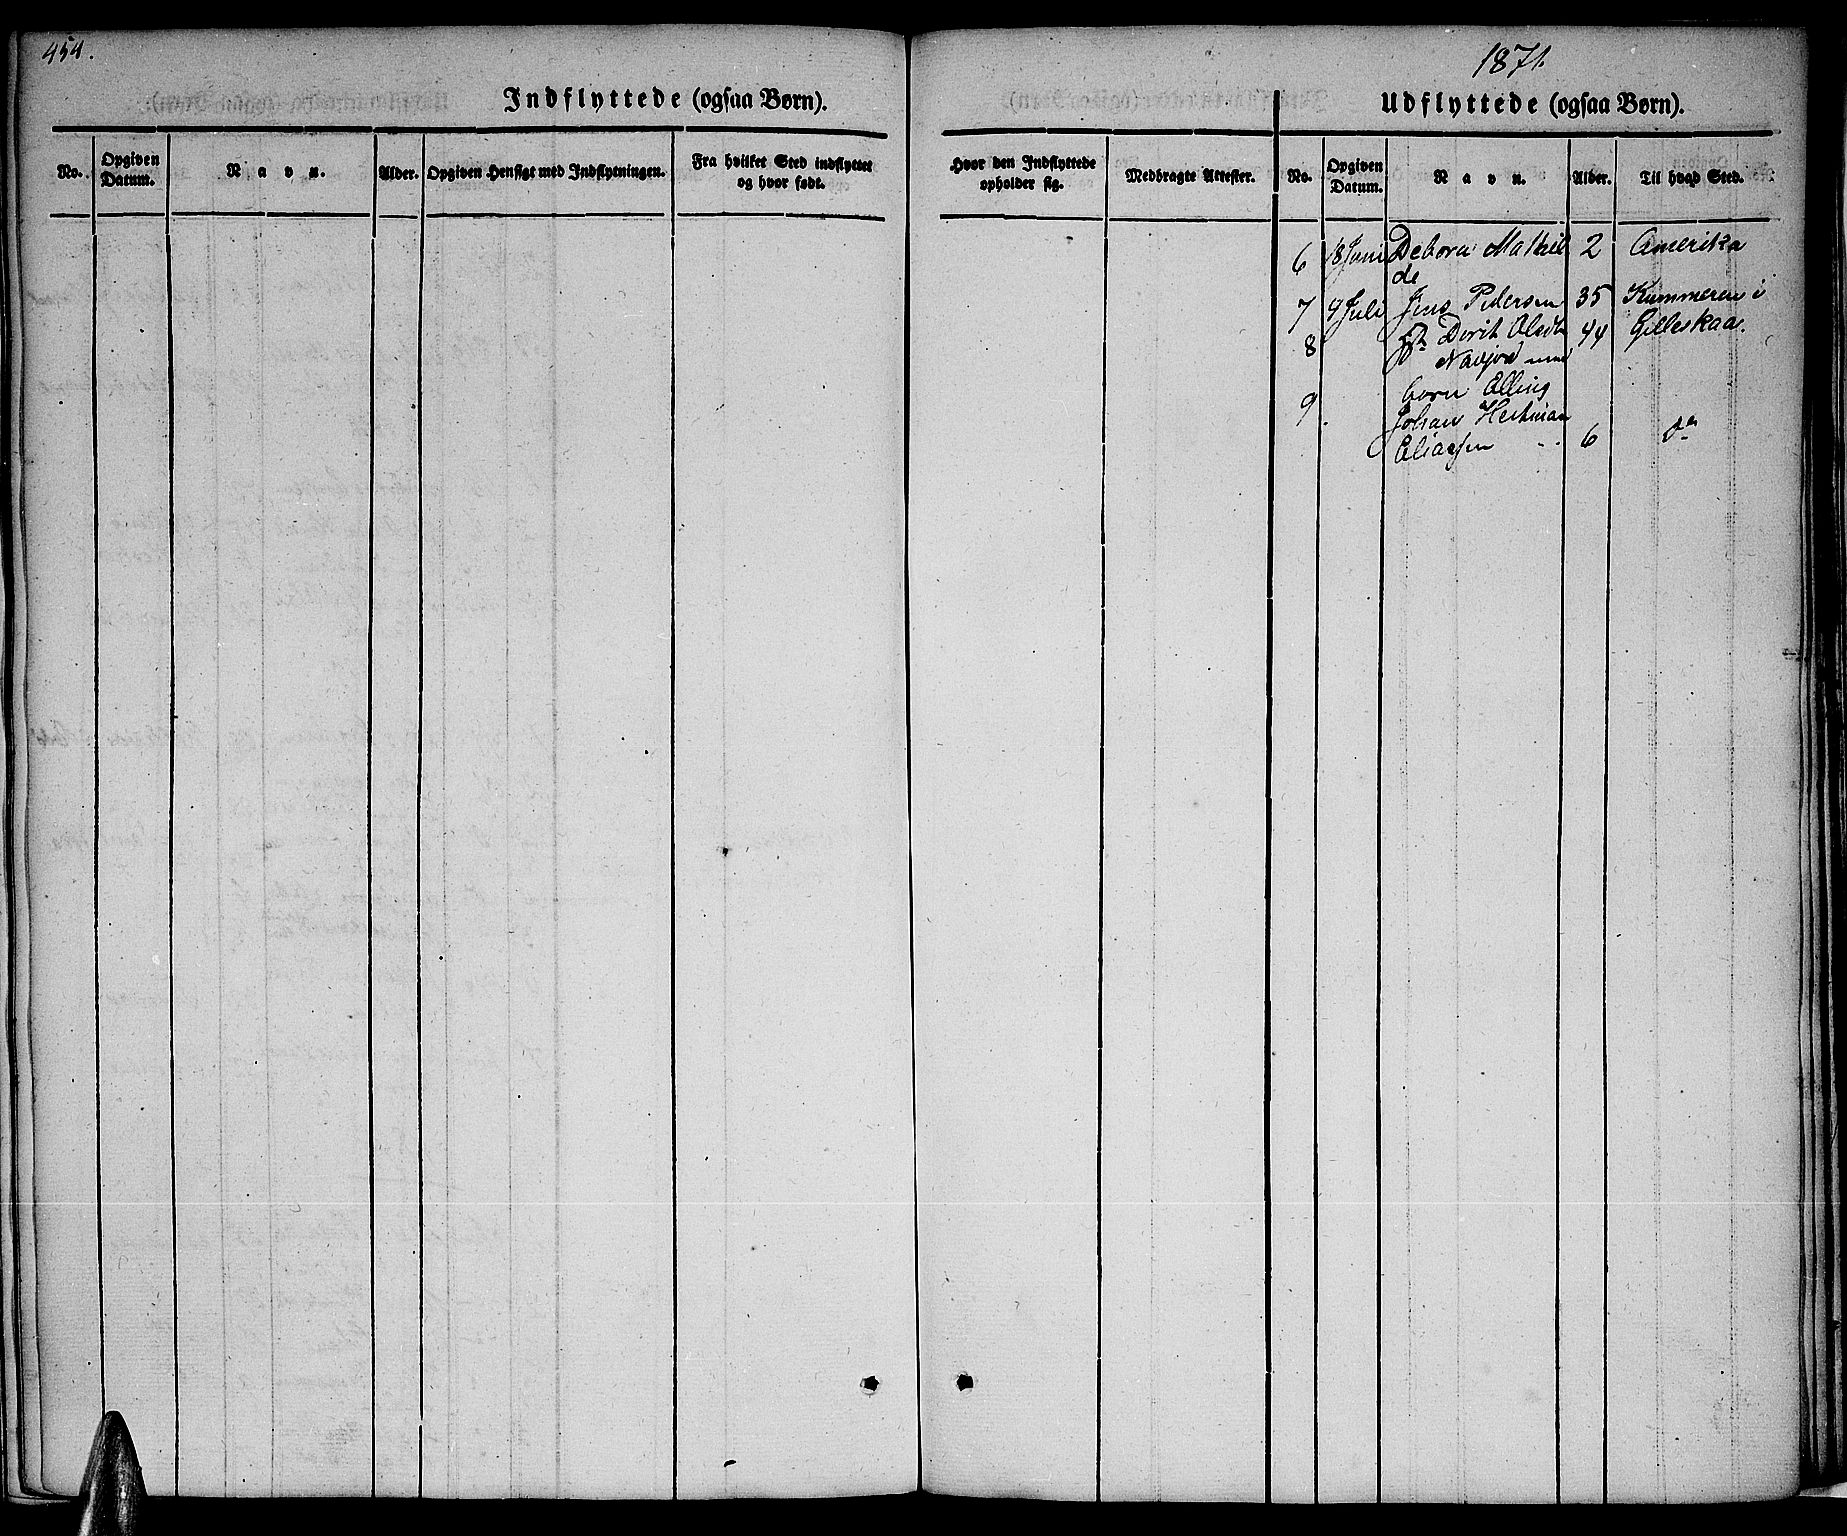 454.
Indflyttede (ogsaa Børn).
No.
Opgiven Datum.
Navn.
Alder.
Opgiven Hensigt med Indflytningen.
Fra hvilket Sted indflyttet og hvor født.
1871.
Udflyttede (ogsaa Børn).
Hvor den Indflyttede opholder sig.
Medbragte Attester.
No.
Opgiven Datum.
Navn.
Alder.
Til hvad Sted.
6 18 Juni Debora Mathil 2 Amerika
de
7 9 Juli Jens Pedersen 35 Kummeren i
8 Dorit Olsdtr 44 Gilleskaal.
med
9. børn Elling
Johan Hertman
Eliassen 6 do